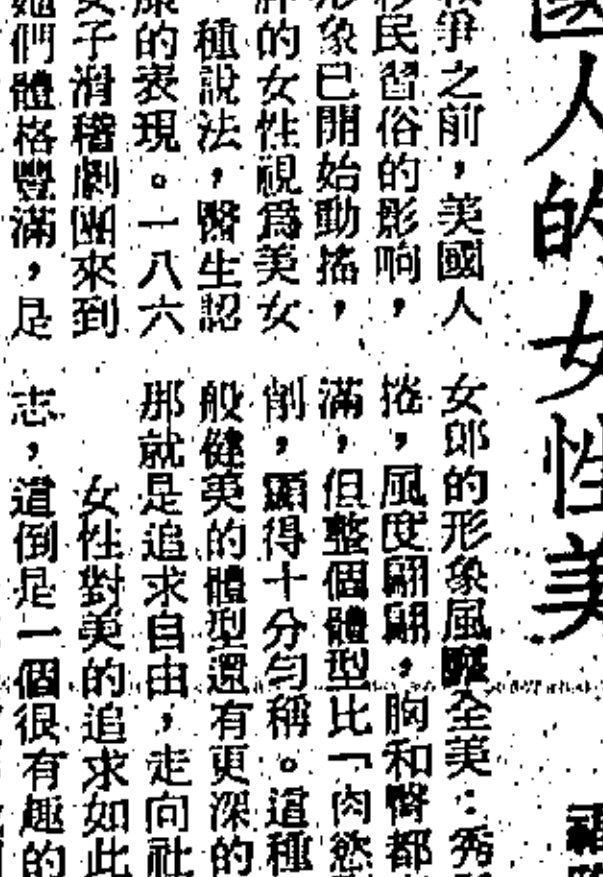 國人的女性美
爭之前，美國人
移民習俗的影响，
形象已開始動搖，
的女性視爲美女
種説法，醫生認
康的表現。一八六
女子滑稽劇團來到
她們體格豐滿，是
女郎的形象風靡全美：秀
捲，風度翩翩，胸和臀都
滿，但整個體型比「肉慾
削，顯得十分勻稱。這種
般健美的體型還有更深的
那就是追求自由，走向社
女性對美的追求如此
志，這倒是一個很有趣的